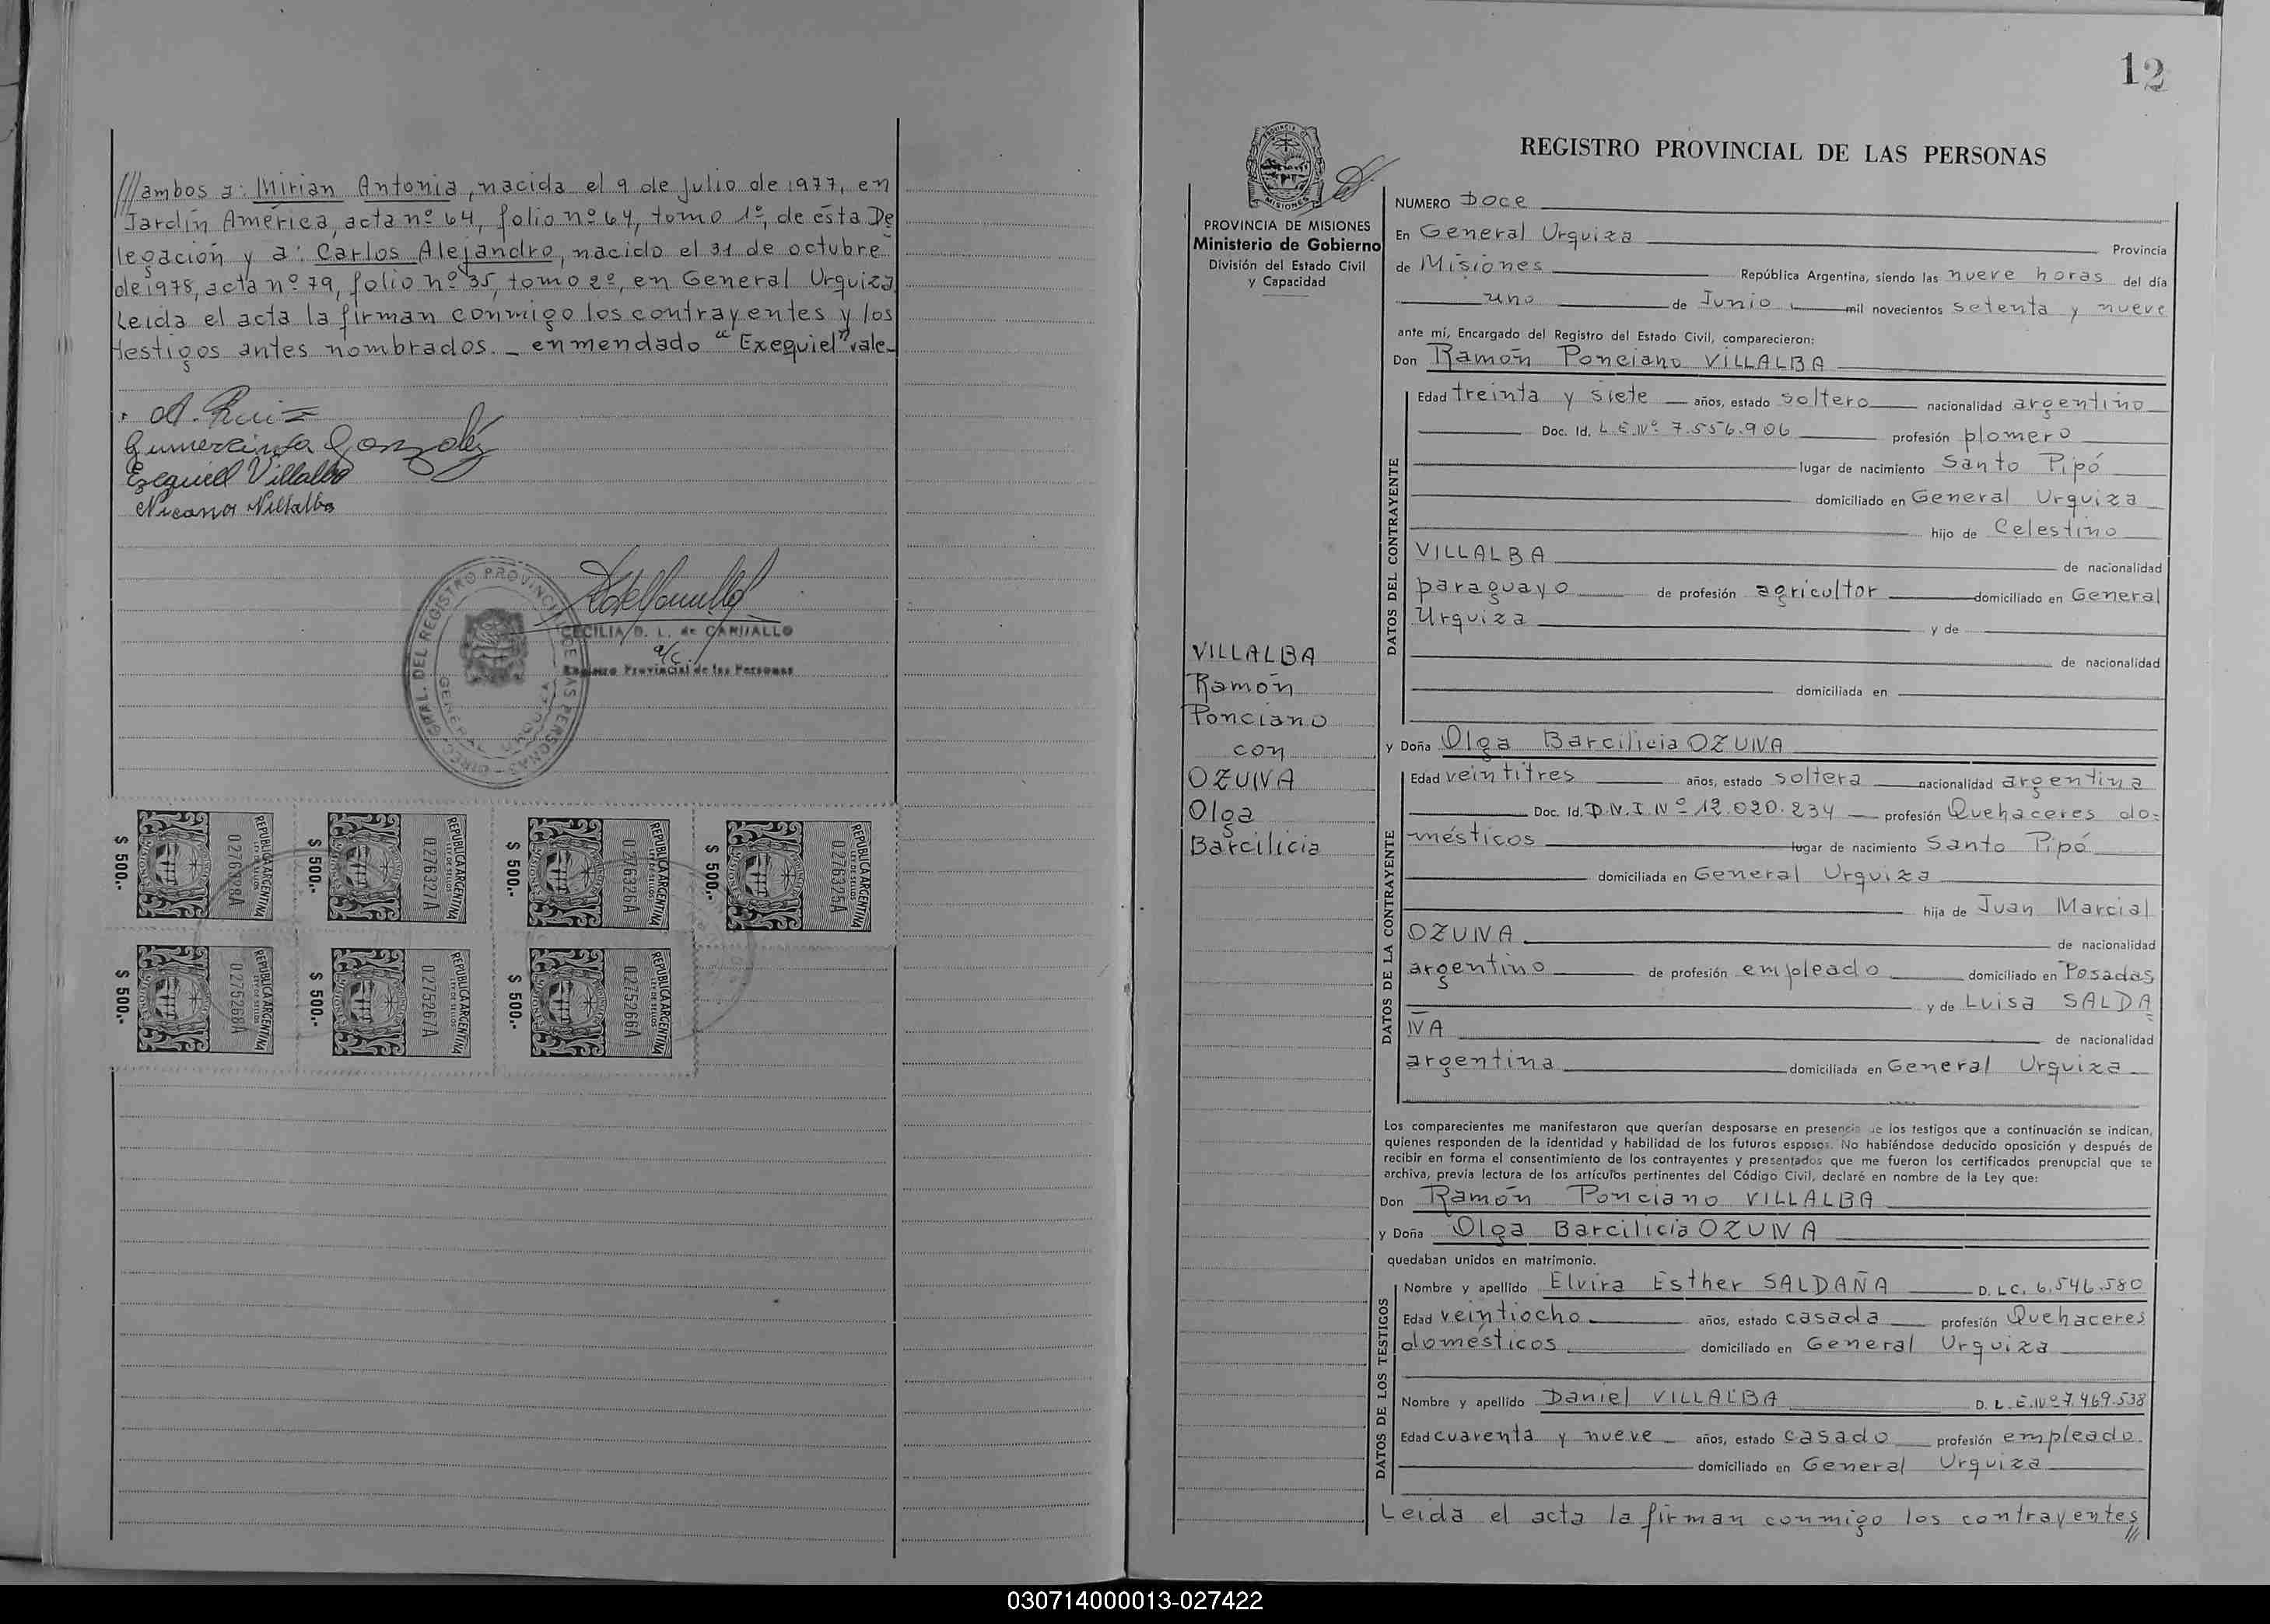 ///ambos a: Mirian Antonia, nacida el 9 de Julio de 1977, en
Jardín América, acta nº 64, folio nº 64, tomo 1º, de ésta De
legación y a: Carlos Alejandro, nacido el 31 de octubre
de 1978, acta nº 79, folio nº 35, tomo 2º, en General Urquiza
Leída el acta la firman conmigo los contrayentes y los
testigos antes nombrados. _ enmendado "Exequiel" vale_
A. Ruiz
Gumercinda González
Ezequiel Villalba
Nicanor Villalba
CECILIA D. L. de CARVALLO
a/c.
Registro Provincial de las Personas
$ 500.-
REPUBLICA ARGENTINA
LEY DE SELLOS
0276328A
$ 500.-
REPUBLICA ARGENTINA
LEY DE SELLOS
0276327A
$ 500.-
REPUBLICA ARGENTINA
LEY DE SELLOS
0276326A
$ 500.-
REPUBLICA ARGENTINA
LEY DE SELLOS
0276325A
$ 500.-
REPUBLICA ARGENTINA
LEY DE SELLOS
0275268A
$ 500.-
REPUBLICA ARGENTINA
LEY DE SELLOS
0275267A
$ 500.-
REPUBLICA ARGENTINA
LEY DE SELLOS
0275266A
12
REGISTRO PROVINCIAL DE LAS PERSONAS
PROVINCIA DE MISIONES
Ministerio de Gobierno
División del Estado Civil
y Capacidad
VILLALBA
Ramón
Ponciano
con
OZUNA
Olga
Barcilicia
NUMERO Doce
En General Urquiza Provincia
de Misiones República Argentina, siendo las nueve horas del día
uno de Junio mil novecientos setenta y nueve
ante mí, Encargado del Registro del Estado Civil, comparecieron:
Don Ramón Ponciano VILLALBA
DATOS DEL CONTRAYENTE
Edad treinta y siete años, estado soltero nacionalidad argentino
Doc. Id. L.E.Nº 7.556.906 profesión plomero
lugar de nacimiento Santo Pipó
domiciliado en General Urquiza
hijo de Celestino
VILLALBA de nacionalidad
paraguayo de profesión agricultor domiciliado en General
Urquiza y de
de nacionalidad
domiciliada en
y Doña Olga Barcilicia OZUNA
DATOS DE LA CONTRAYENTE
Edad veintitres años, estado soltera nacionalidad argentina
Doc. Id. D.N.I.Nº 12.020.234 profesión Quehaceres do-
mésticos lugar de nacimiento Santo Pipó
domiciliada en General Urquiza
hija de Juan Marcial
OZUNA de nacionalidad
argentino de profesión empleado domiciliado en Posadas
y de Luisa SALDA
ÑA de nacionalidad
argentina domiciliada en General Urquiza
Los comparecientes me manifestaron que querían desposarse en presencia de los testigos que a continuación se indican,
quienes responden de la identidad y habilidad de los futuros esposos. No habiéndose deducido oposición y después de
recibir en forma el consentimiento de los contrayentes y presentados que me fueron los certificados prenupcial que se
archiva, previa lectura de los artículos pertinentes del Código Civil, declaré en nombre de la Ley que:
Don Ramón Ponciano VILLALBA
y Doña Olga Barcilicia OZUNA
quedaban unidos en matrimonio.
DATOS DE LOS TESTIGOS
Nombre y apellido Elvira Esther SALDAÑA D. LC. 6.546.580
Edad veintiocho años, estado casada profesión Quehaceres
domésticos domiciliado en General Urquiza
Nombre y apellido Daniel VILLALBA D. L.E.Nº 7.469.538
Edad cuarenta y nueve años, estado casado profesión empleado
domiciliado en General Urquiza
Leída el acta la firman conmigo los contrayentes
//
030714000013-027422